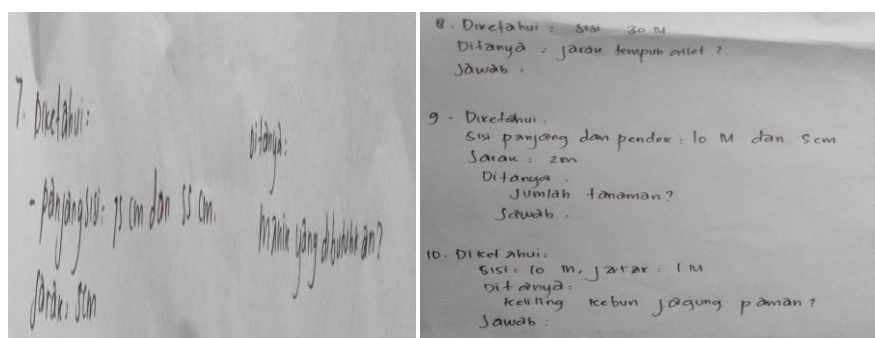 7. Diketahui:
- panjang sisi: 75 cm dan 55 cm.
Jarak: 5cm
Ditanya:
Manik yang dibutuhkan?
8. Diketahui: sisi 30 M
Ditanya: jarak tempuh atlet?
Jawab:
9. Diketahui:
Sisi panjang dan pendek: 10 M dan 5 cm
Jarak: 2m
Ditanya.
Jumlah tanaman?
Jawab:
10. Diketahui:
Sisi: 10 m, jarak: 1 M
Ditanya:
Keliling kebun jagung paman?
Jawab: